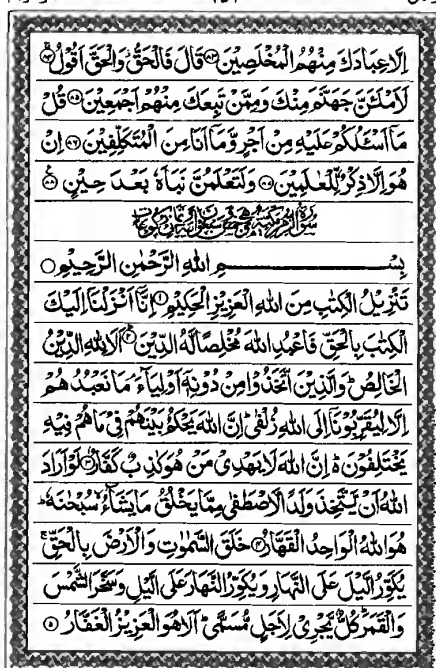 اِلَّا عِبَادَكَ مِنْهُمُ الْمُخْلَصِيْنَ ﴿۸۳﴾ قَالَ فَالْحَقُّ وَالْحَقَّ اَقُوْلُ ﴿۸۴﴾
لَاَمْلَئَنَّ جَهَنَّمَ مِنْكَ وَمِمَّنْ تَبِعَكَ مِنْهُمْ اَجْمَعِيْنَ ﴿۸۵﴾ قُلْ
مَاۤ اَسْـَٔلُكُمْ عَلَيْهِ مِنْ اَجْرٍ وَّمَاۤ اَنَا مِنَ الْمُتَكَلِّفِيْنَ ﴿۸۶﴾ اِنْ
هُوَ اِلَّا ذِكْرٌ لِّلْعٰلَمِيْنَ ﴿۸۷﴾ وَلَتَعْلَمُنَّ نَبَاَهٗ بَعْدَ حِيْنٍ ﴿۸۸﴾
بِسْمِ اللهِ الرَّحْمٰنِ الرَّحِيْمِ
تَنْزِيْلُ الْكِتٰبِ مِنَ اللهِ الْعَزِيْزِ الْحَكِيْمِ ﴿۱﴾ اِنَّاۤ اَنْزَلْنَاۤ اِلَيْكَ
الْكِتٰبَ بِالْحَقِّ فَاعْبُدِ اللهَ مُخْلِصًا لَّهُ الدِّيْنَ ﴿۲﴾ اَلَا لِلهِ الدِّيْنُ
الْخَالِصُ ؕ وَالَّذِيْنَ اتَّخَذُوْا مِنْ دُوْنِهٖۤ اَوْلِيَآءَ ۘ مَا نَعْبُدُهُمْ
اِلَّا لِيُقَرِّبُوْنَاۤ اِلَى اللهِ زُلْفٰى ؕ اِنَّ اللهَ يَحْكُمُ بَيْنَهُمْ فِيْ مَا هُمْ فِيْهِ
يَخْتَلِفُوْنَ ۬ؕ اِنَّ اللهَ لَا يَهْدِيْ مَنْ هُوَ كٰذِبٌ كَفَّارٌ ﴿۳﴾ لَوْ اَرَادَ
اللهُ اَنْ يَّتَّخِذَ وَلَدًا لَّاصْطَفٰى مِمَّا يَخْلُقُ مَا يَشَآءُ ۙ سُبْحٰنَهٗ ؕ
هُوَ اللهُ الْوَاحِدُ الْقَهَّارُ ﴿۴﴾ خَلَقَ السَّمٰوٰتِ وَالْاَرْضَ بِالْحَقِّ ۚ
يُكَوِّرُ الَّيْلَ عَلَى النَّهَارِ وَيُكَوِّرُ النَّهَارَ عَلَى الَّيْلِ وَسَخَّرَ الشَّمْسَ
وَالْقَمَرَ ؕ كُلٌّ يَّجْرِيْ لِاَجَلٍ مُّسَمًّى ؕ اَلَا هُوَ الْعَزِيْزُ الْغَفَّارُ ﴿۵﴾